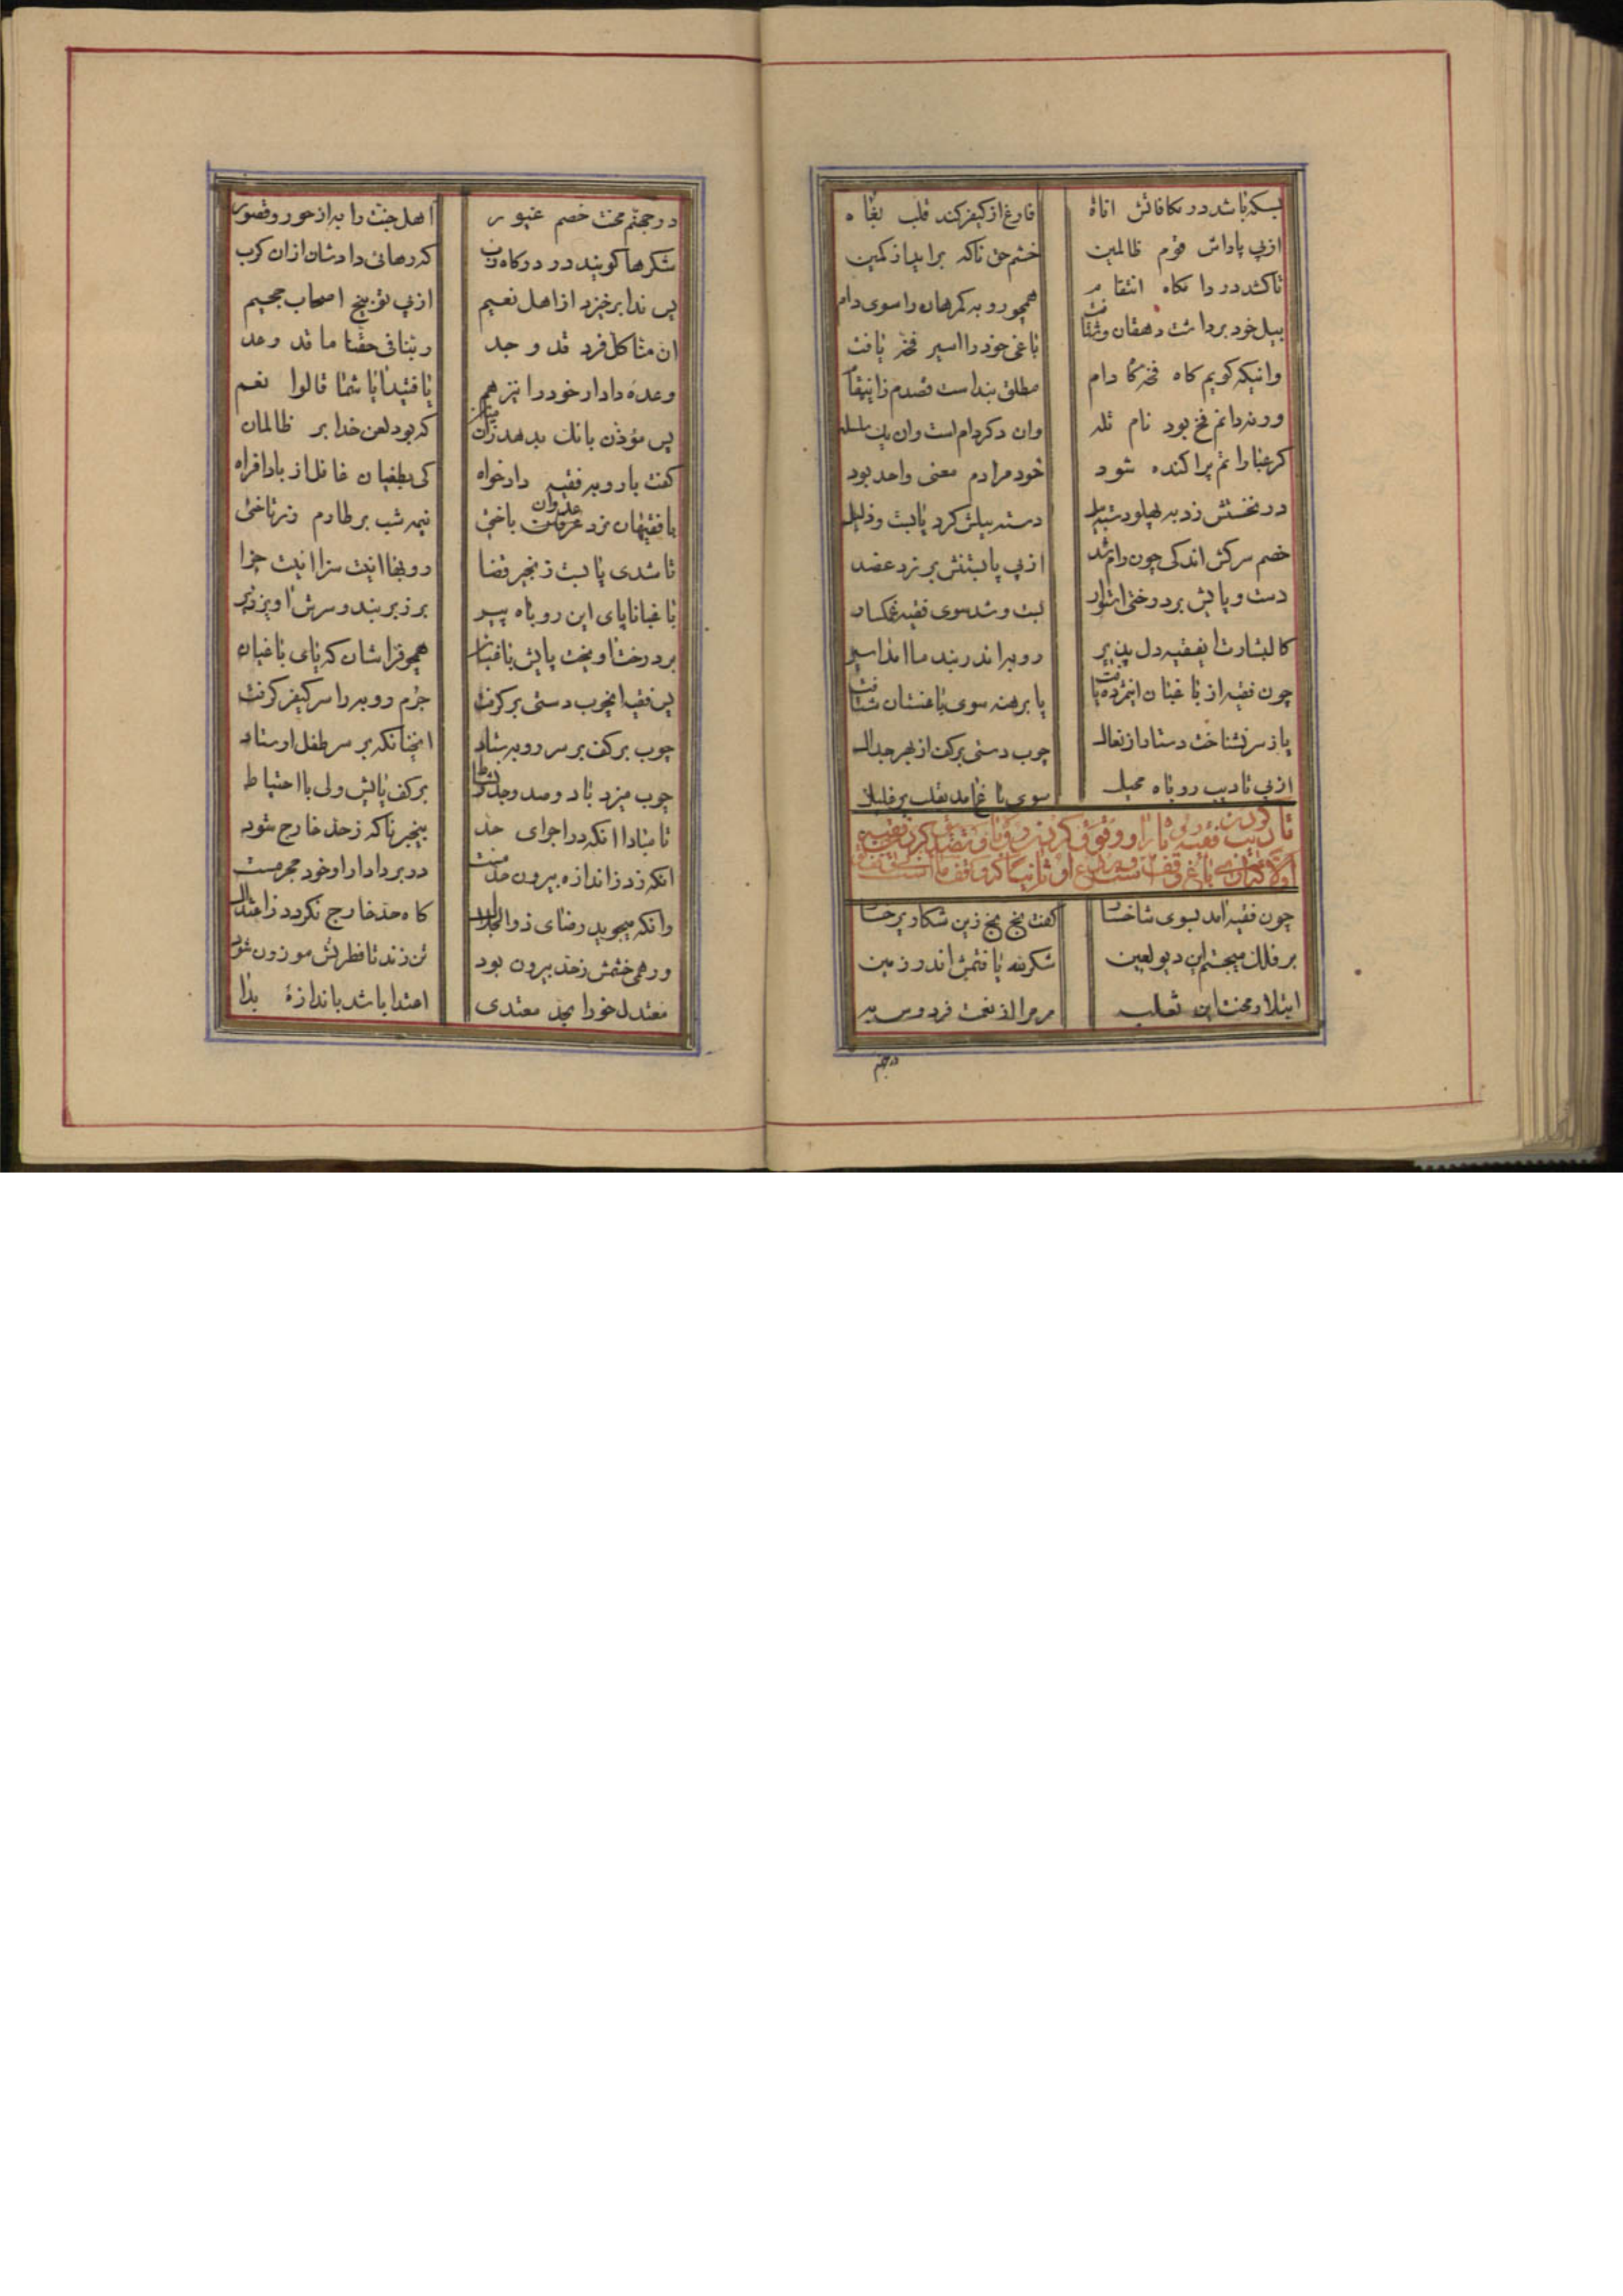 بسکه باشد در مکافاتش اناة فارغ از کیفر کند قلب بغاه
ازپی پاداش قوم ظالمین خشم حق ناکه براید از کمین
تا کشد در دامگاه انتقام همچو روبه کمرهان را سوی دام
بیل خود برداشت دهقان و شتافت باغی خود را اسیر فخ یافت
وانیکه کویم کاه فخ کا دام مطلق بند است قصدم زانیقام
ورنه دانم فخ بود نام تله وان دکر دام است وان یک سلسله
کر عبارا تم پراکنده شود خود مرادم معنی واحد بود
در نخستش زد به پهلو دسته بیل دسته بیلش کرد پابست و ذلیل
خصم سرکش اندکی چون رام شد ازپی پابستنش بر زد عضد
دست و پایش بر درختی استوار بست و شد سوی فقیه غمکسار
کالبشارت ایفقیه دل پذیر روبه اندر بند ما امد اسیر
چون فقیه از باغبان اینمژده یافت پا برهنه سوی باغستان شتافت
باز سر نشناخت دستار از نعال چوب دستی برکف از بهر جدال
ازپی تادیب روباه محیل سوی باغ امد
چون فقیه امد بسوی شاخسار کفت بخ بخ زین شکار
بر فلک میجستم این دیو لعین شکر لله یافتمش اندر زمین
ابتلا و محنت این ثعلب مر مرا لذ نعمت فردوس به
درجهنم
درجهنم محنت خصم غیور اهل جنت را به از حور و قصور
شکرها کویند در درکاه رب که رهائی دادشان از ان کرب
پس ندا برخیزد از اهل نعیم ازپی توبیخ اصحاب جحیم
ان مثا کل فرد قد وجد ربنا فی حقنا ما قد وعد
وعده دادار خود را نیز هم یافتید ایا شما قالوا نعم
پس مؤذن بانک بدهد زان میان که بود لعن خدا بر ظالمان
کفت با روبه فقیه دادخواه کی بطغیان غافل از بادافراه
با فقیهان نرد عدوان باختی نیمه شب بر طارم رز تاختی
تا شدی پابست زنجیر قضا روبها اینت سزا اینت جزا
باغبانا پای این روباه پیر بر زبر بند و سرش اویز زیر
بر درخت اویخت پایش باغبان همچو فراشان که پای باغیان
پس فقیه انچوب دستی بر کرفت جرم روبه را سر کیفر کرفت
چوب بر کف بر سر روبه ستاد انچنانکه بر سر طفل اوستاد
چوب میزد با دو صد وجد و نشاط بر کف پایش ولی با احتیاط
تا مبادا انکه در اجرای حد بیخبر ناکه زحد خارج شود
انکه زد ز اندازه بیرون حد مست در بر دادار او خود مجرمست
وانکه میجوید رضای ذوالجلال کاه حد خارج نکردد ز اعتدال
ور همی خشمش زحد بیرون بود تن زند تا فطرتش موزون شود
معتدل خو را بحد معتدی اعتدا باشد باندازهٔ بذا